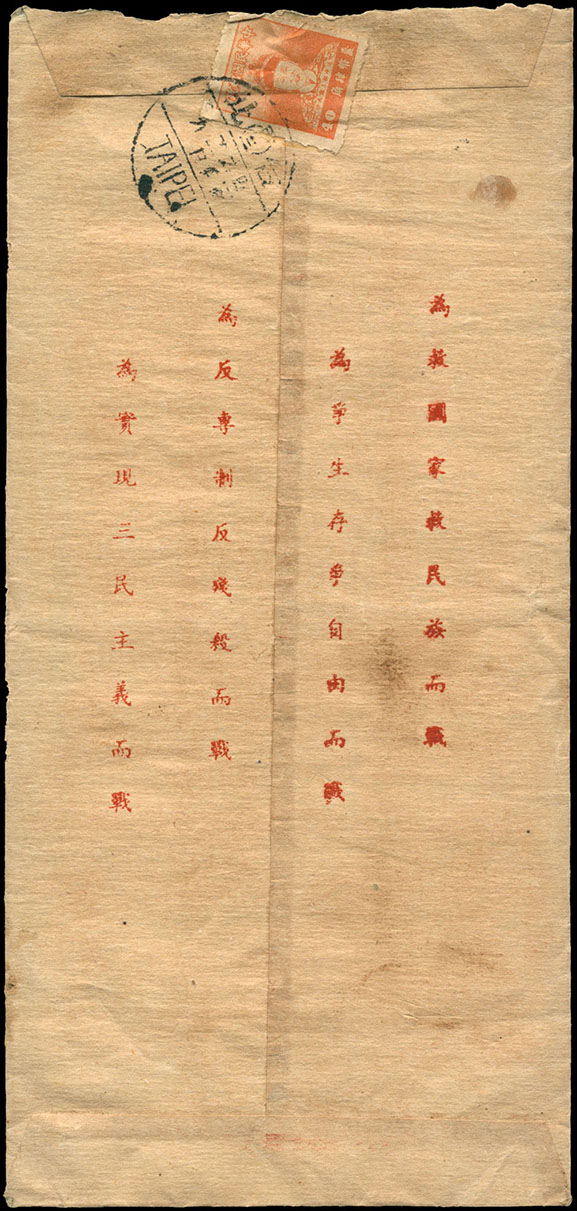 為救國家救民族而戰
為爭生存爭自由而戰
為反專制反殘殺而戰
為實現三民主義而戰
TAIPEI
40